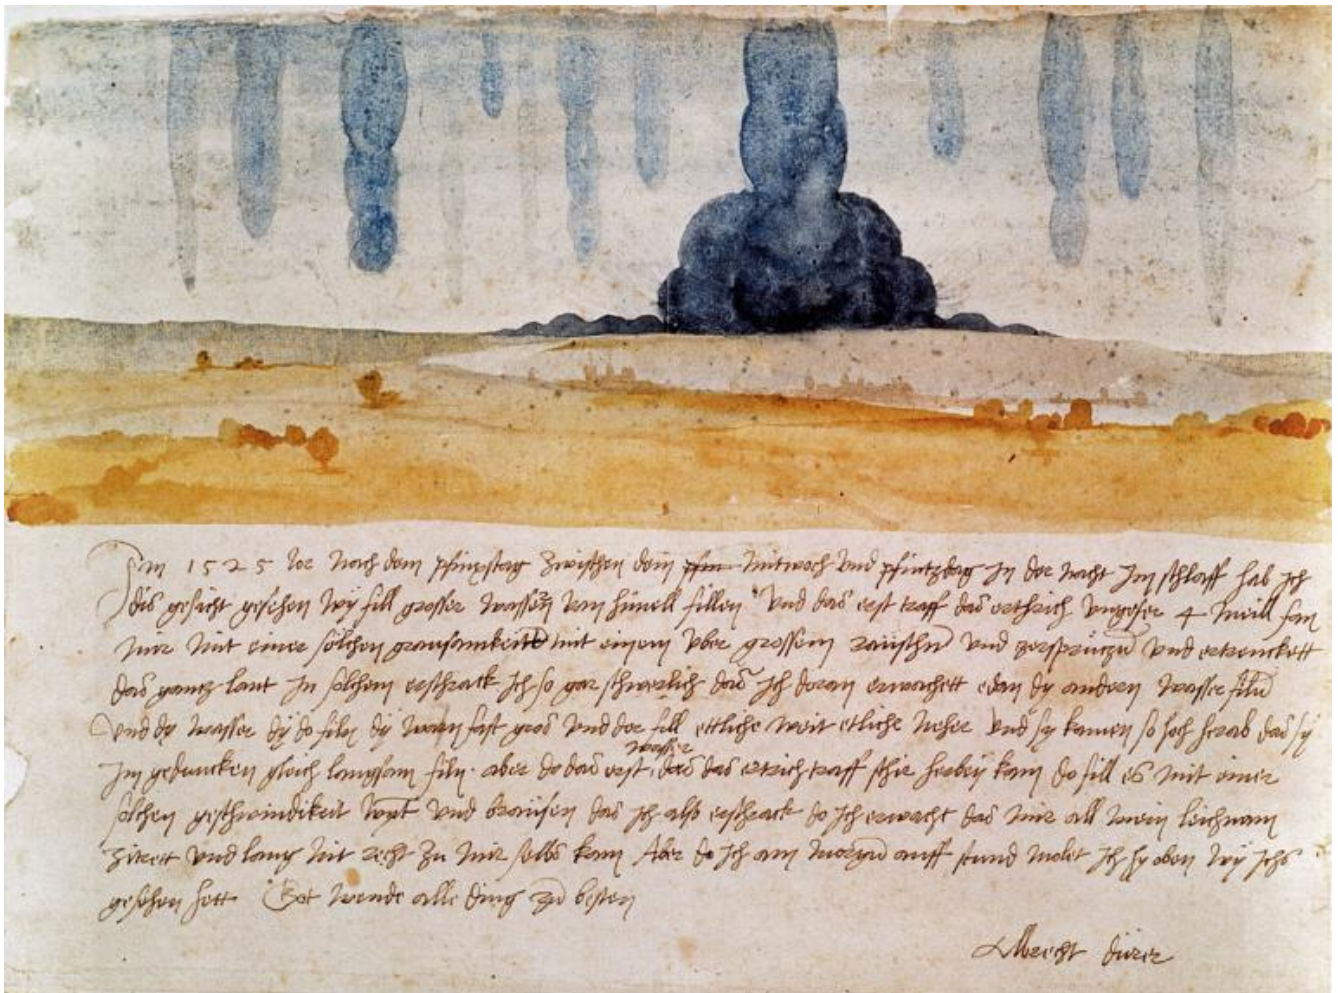 Im 1525 Jor nach dem pfinxstag zwischen dem pfin Mitwoch und pfintzdag in der nacht im schlaff hab ich
dis gesicht gesehen wy fill grosser wassern vam himell fillen Und das erst traff das erthrich ungefer 4 meill fan
mir mit einer solchen grausamkeitt mit einem uber grossem raüschn und zersprützn und ertrenckett
das gantz lant In solchem erschrack ich so gar schwerlich das ich doran erwachett edan dy andren wasser filn
Und dy wasser dy do filn dy warn fast gros und der fill ettliche weit etliche neher und sy kamen so hoch herab das sy
im geduncken gleich langsam filn. aber do das erst wasser das das ertrich traff schir herbey kam do fill es mit einer
solchen geschwindikeit wynt und braüsen das ich also erschrack do ich erwacht das mir all mein leichnam
zitrett und lang nit recht zu mir selbs kam Aber do ich am morgn auff stund molet ich hy oben wy ichs
gesehen hett Got wende alle ding zu besten
Albrecht dürer